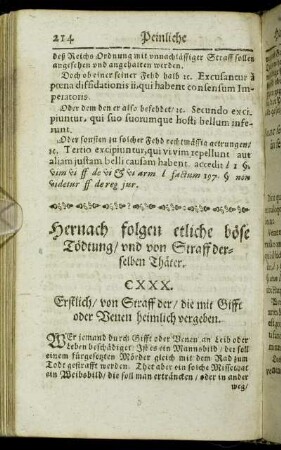 214 Peinliche
deß Reichs Ordnung mit vnnachlässiger Straff sollen
angesehen vnd angehalten werden.
Doch ob einer seiner Fehd halb ꝛc. Excusantur à
pœna diffidationis ii. qui habent consensum Im-
peratoris.
Oder dem den er also befehdet/ ꝛc. Secundo exci-
piuntur, qui suo suorumque hosti bellum infe-
runt.
Oder sonsten zu solcher Fehd rechtmässig getrungen/
ꝛc. Tertio excipiuntur, qui vi vim repellunt aut
aliam justam belli causam habent. accedit l 1 §.
vim vi ff de vi & vi arm l factum 197. § non
videtur ff de reg jur.
Hernach folgen etliche böse
Tödtung/ vnd von Straff der-
selben Thäter.
CXXX.
Erstlich/ von Straff der/ die mit Gifft
oder Venen heimlich vergeben.
WEr jemand durch Gifft oder Venen an Leib oder
Leben beschädiget/ Ist es ein Mannsbild/ der soll
einem fürgesetzten Mörder gleich mit dem Rad zum
Todt gestrafft werden. Thet aber ein solche Missethat
ein Weibsbild/ die soll man ertråncken/ oder in ander
weg/